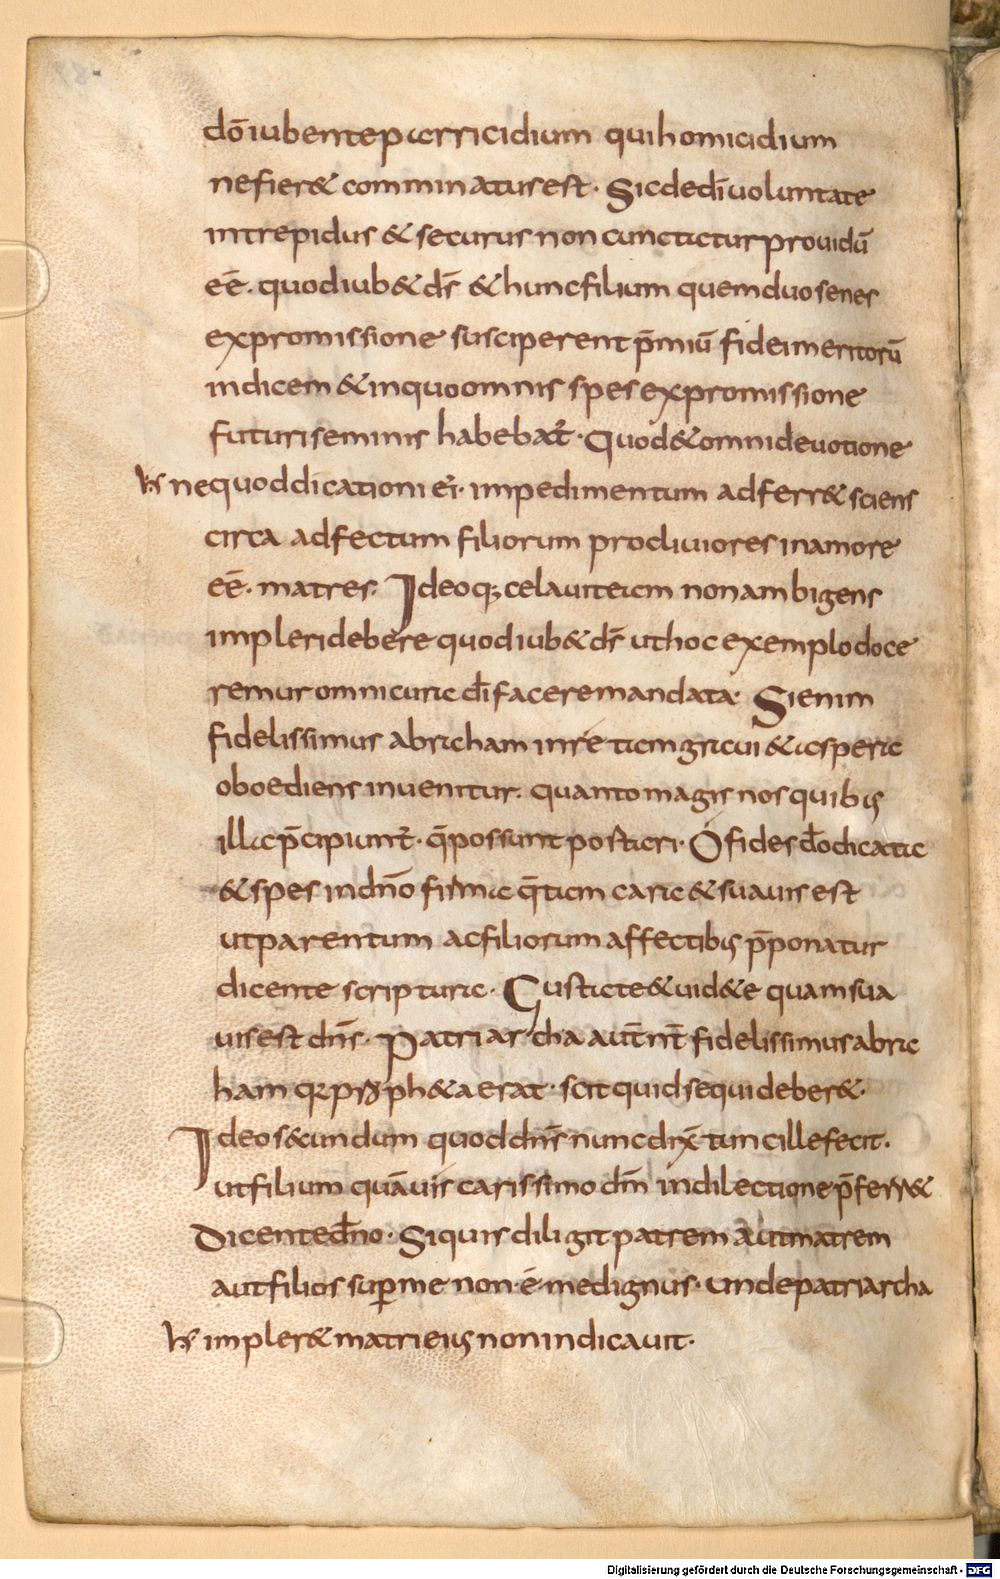 dō iubente parricidium qui homicidium
ne fier& comminatus est· Sic de dei uoluntate
intrepidus & securus non cunctatur prouidū
eē· quod iub& dr̄ & hunc filium quem duo senes
ex promissione susciperent p̄miū fidei meritorū
indicem & in quo omnis spes ex promissione
futuri seminis habebat̄· Quod & omni deuotione
ne quod dicationi ei· impedimentum adferr& sciens
circa adfectum filiorum procliuiores in amore
eē· matres· Ideoq; celauit eam non ambigens
impleri debere quod iub& dr̄ ut hoc exemplo doce
remur omni cura dī facere mandata· Si enim
fidelissimus abraham in re tam graui & aspera
oboediens inuenitur· quanto magis nos quibus
illa p̄cipiunt̄· q̄ possunt post ieri· O fides dō dicata
& spes in dnō firma q̄ tam cara & suauis est
ut parentum ac filiorum affectibus p̄ponatur
dicente scriptura· Gustate & uid&e quam sua
uis est dn̄s· Patriarcha aut̄ nt̄ fidelissimus abra
ham qr proph&a erat· scit quid sequi deber&·
Ideo secundum quod dn̄s nunc dix̄ tunc ille fecit·
ut filium quāuis carissimo dn̄m in dilectione p̄ferr&
Dicente dn̄o· Si quis diligit patrem aut matrem
aut filios sup̄ me non· ē· me dignus· Unde patriarcha
impler& matri eius non indicauit·
Digitalisierung gefördert durch die Deutsche Forschungsgemeinschaft - DFG